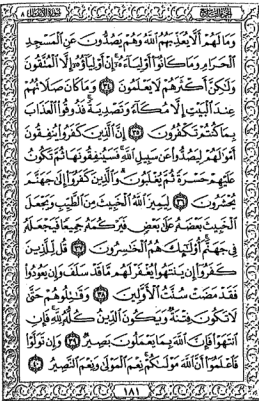 الجزء التاسع سورة الأنفال ٨
وَمَا لَهُمْ أَلَّا يُعَذِّبَهُمُ ٱللَّهُ وَهُمْ يَصُدُّونَ عَنِ ٱلْمَسْجِدِ
ٱلْحَرَامِ وَمَا كَانُوٓا۟ أَوْلِيَآءَهُۥٓ إِنْ أَوْلِيَآؤُهُۥٓ إِلَّا ٱلْمُتَّقُونَ
وَلَٰكِنَّ أَكْثَرَهُمْ لَا يَعْلَمُونَ ٣٤ وَمَا كَانَ صَلَاتُهُمْ
عِندَ ٱلْبَيْتِ إِلَّا مُكَآءً وَتَصْدِيَةً فَذُوقُوا۟ ٱلْعَذَابَ
بِمَا كُنتُمْ تَكْفُرُونَ ٣٥ إِنَّ ٱلَّذِينَ كَفَرُوا۟ يُنفِقُونَ
أَمْوَٰلَهُمْ لِيَصُدُّوا۟ عَن سَبِيلِ ٱللَّهِ فَسَيُنفِقُونَهَا ثُمَّ تَكُونُ
عَلَيْهِمْ حَسْرَةً ثُمَّ يُغْلَبُونَ وَٱلَّذِينَ كَفَرُوٓا۟ إِلَىٰ جَهَنَّمَ
يُحْشَرُونَ ٣٦ لِيَمِيزَ ٱللَّهُ ٱلْخَبِيثَ مِنَ ٱلطَّيِّبِ وَيَجْعَلَ
ٱلْخَبِيثَ بَعْضَهُۥ عَلَىٰ بَعْضٍ فَيَرْكُمَهُۥ جَمِيعًا فَيَجْعَلَهُۥ
فِى جَهَنَّمَ أُو۟لَٰٓئِكَ هُمُ ٱلْخَٰسِرُونَ ٣٧ قُل لِّلَّذِينَ
كَفَرُوٓا۟ إِن يَنتَهُوا۟ يُغْفَرْ لَهُم مَّا قَدْ سَلَفَ وَإِن يَعُودُوا۟
فَقَدْ مَضَتْ سُنَّتُ ٱلْأَوَّلِينَ ٣٨ وَقَٰتِلُوهُمْ حَتَّىٰ
لَا تَكُونَ فِتْنَةٌ وَيَكُونَ ٱلدِّينُ كُلُّهُۥ لِلَّهِ فَإِنِ
ٱنتَهَوْا۟ فَإِنَّ ٱللَّهَ بِمَا يَعْمَلُونَ بَصِيرٌ ٣٩ وَإِن تَوَلَّوْا۟
فَٱعْلَمُوٓا۟ أَنَّ ٱللَّهَ مَوْلَىٰكُمْ نِعْمَ ٱلْمَوْلَىٰ وَنِعْمَ ٱلنَّصِيرُ ٤٠
١٨١